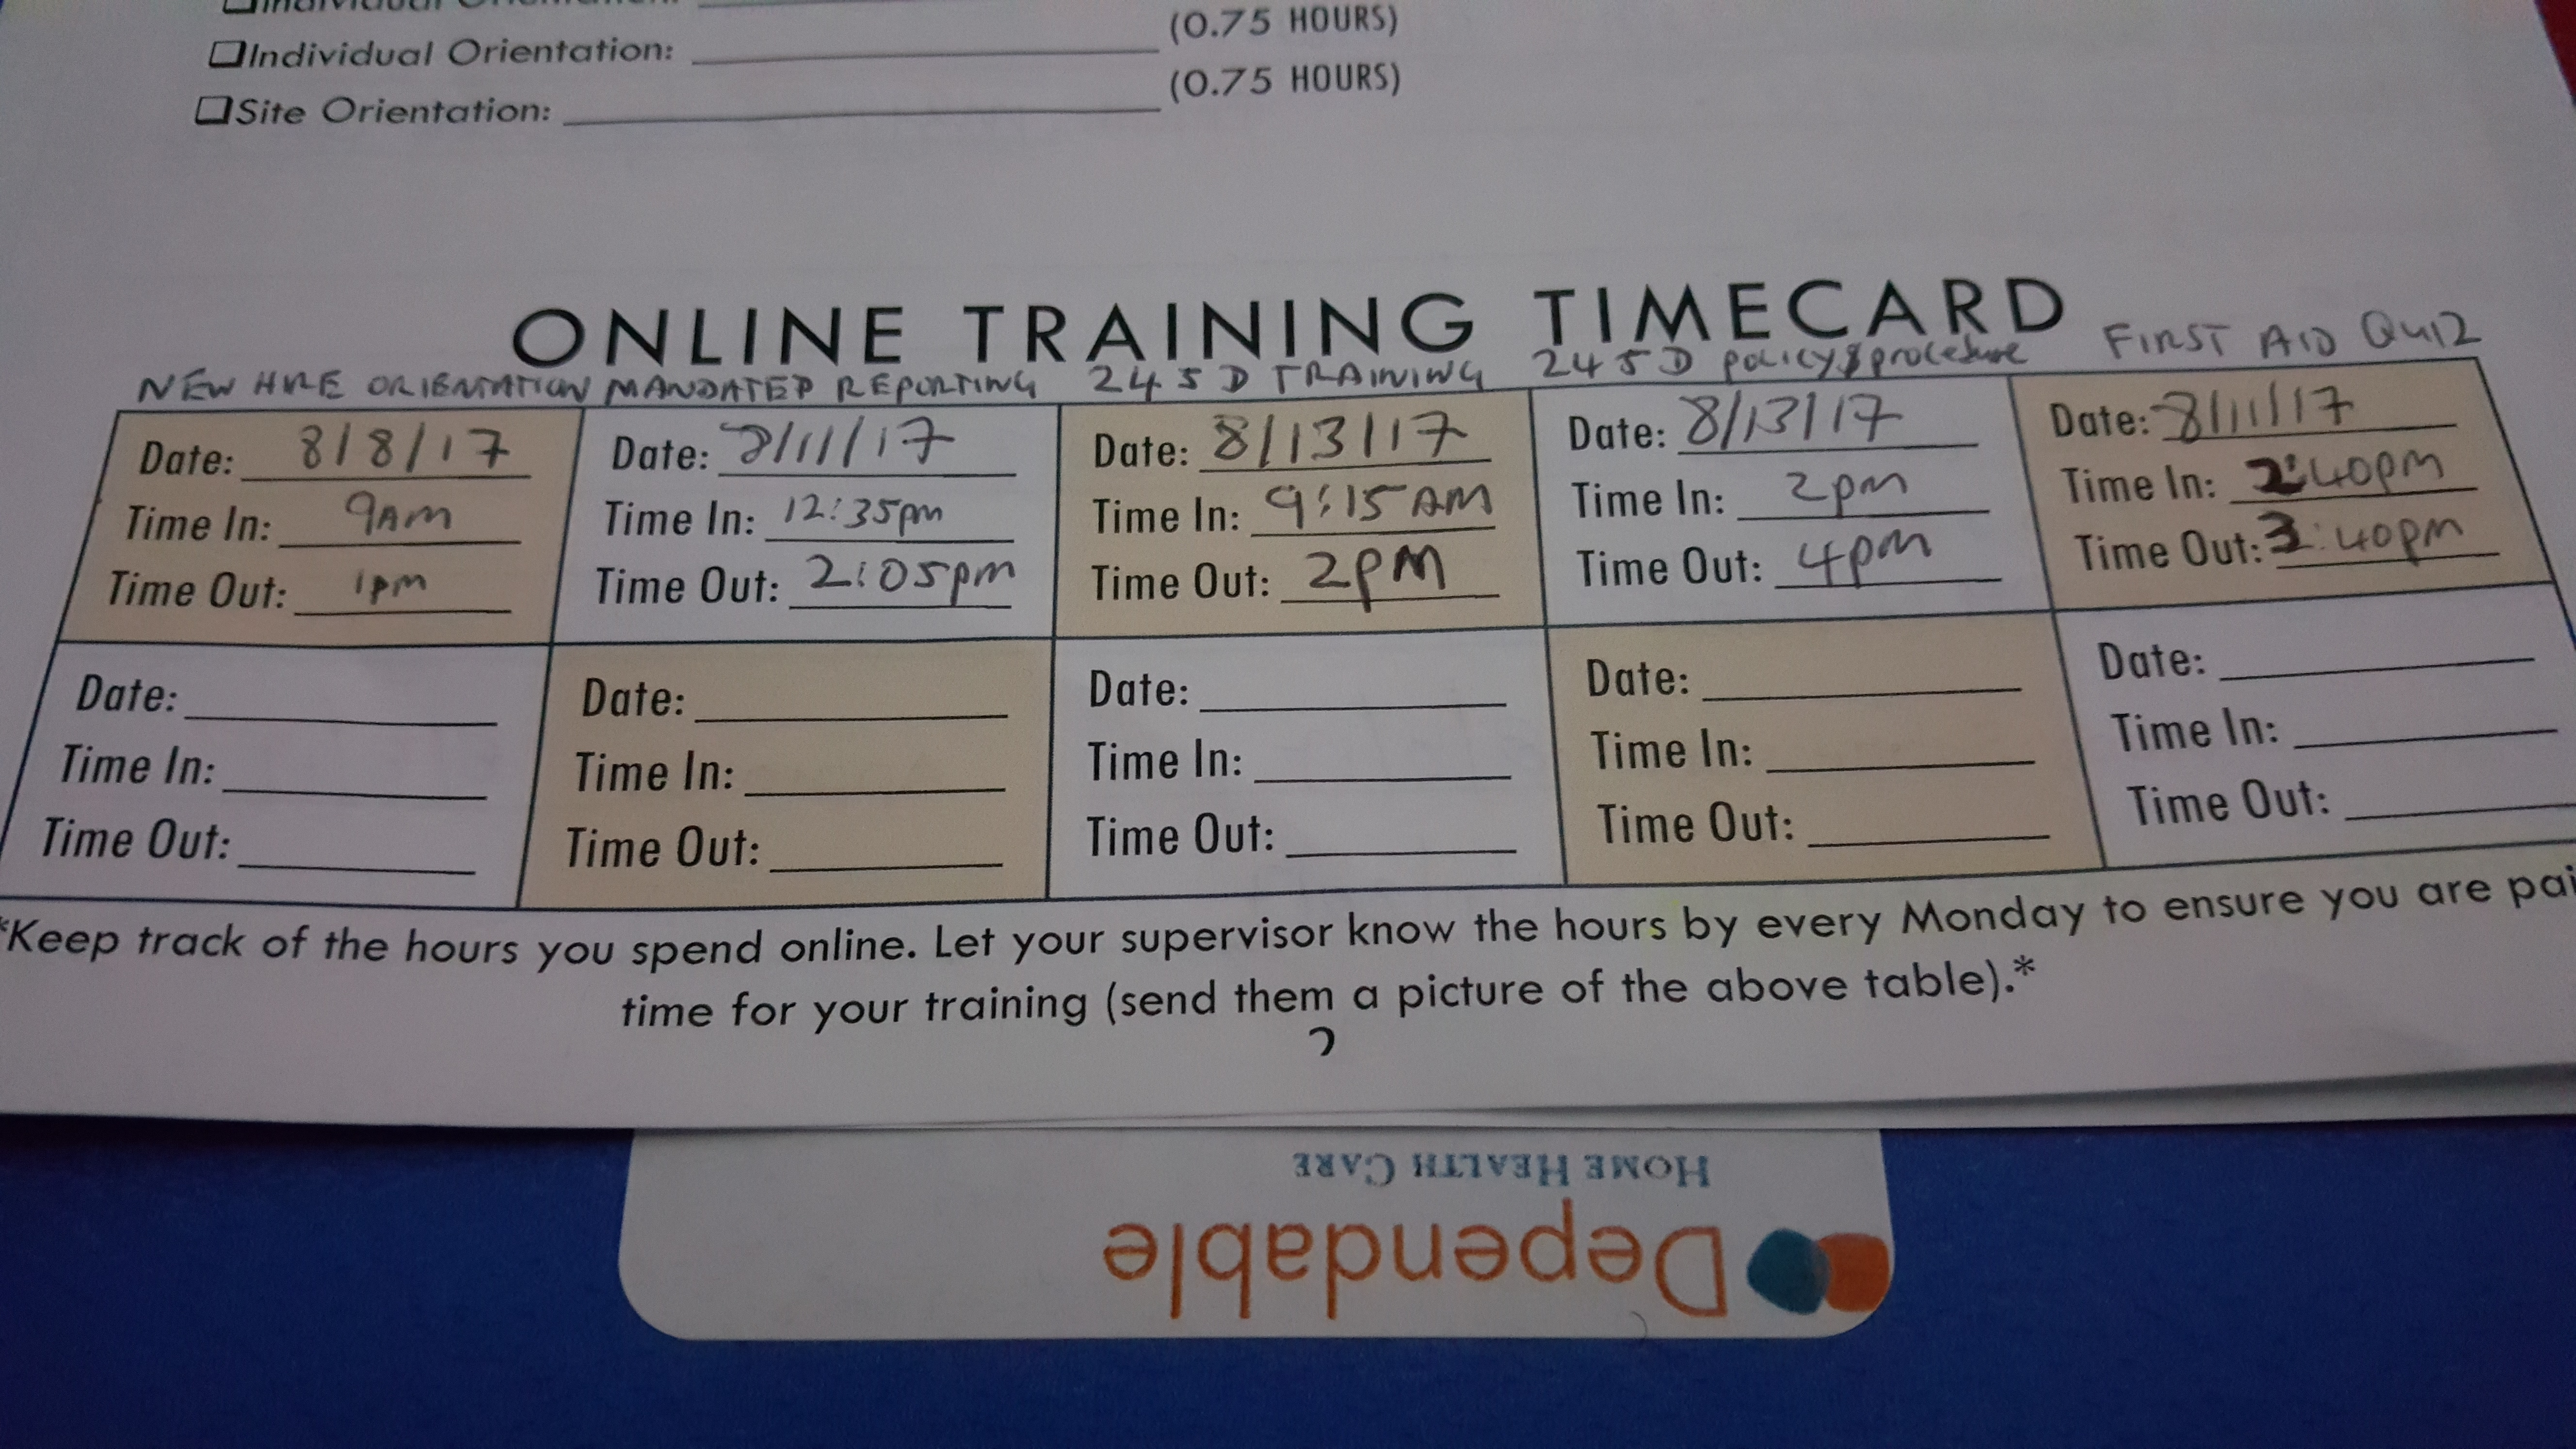 ☐Individual Orientation:
(0.75 HOURS)
☐Individual Orientation:
(0.75 HOURS)
☐Site Orientation:
ONLINE TRAINING TIMECARD
NEW HIRE ORIENTATION MANDATED REPORTING 245D TRAINING 245D policy & procedure FIRST AID QUIZ
Date: 8/8/17 Date: 8/11/17 Date: 8/13/17 Date: 8/13/17 Date: 8/11/17
Time In: 9AM Time In: 12:35pm Time In: 9:15 AM Time In: 2pm Time In: 2:40pm
Time Out: 1pm Time Out: 2:05pm Time Out: 2pm Time Out: 4pm Time Out: 3:40pm
Date: Date: Date: Date: Date:
Time In: Time In: Time In: Time In: Time In:
Time Out: Time Out: Time Out: Time Out: Time Out:
*Keep track of the hours you spend online. Let your supervisor know the hours by every Monday to ensure you are pai
time for your training (send them a picture of the above table).*
2
HOME HEALTH CARE
Dependable